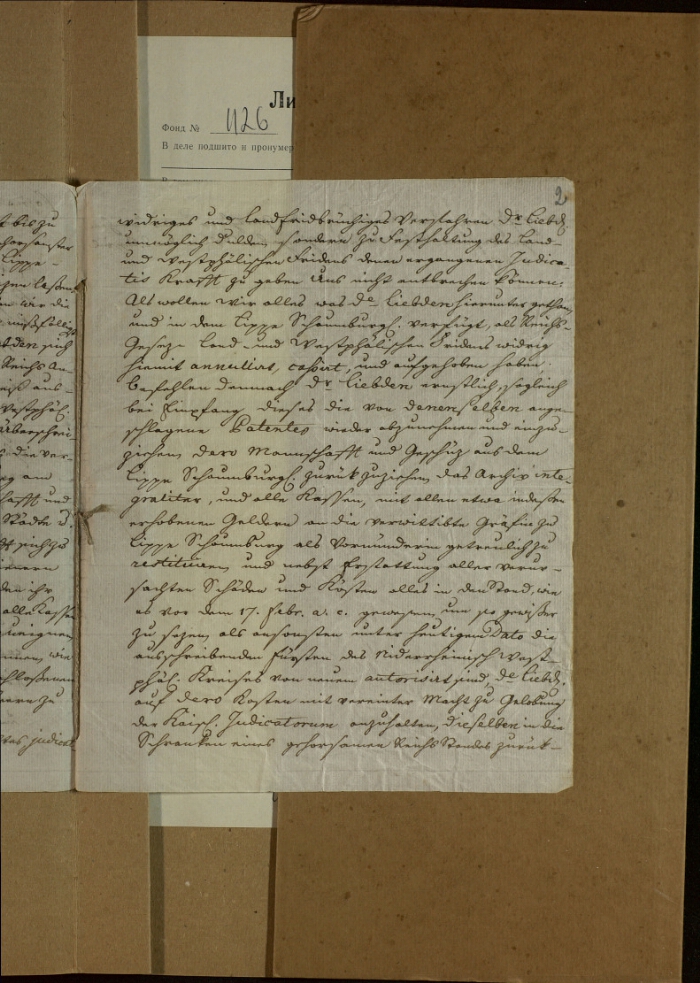 Ли
Фонд № 1126
В деле подшито и пронумер
2
widriges und landfridbrüchiges Verfahren Dr Liebd.
unmöglich dulden, sondern zu Festhaltung des Land-
und Westphälischen Fridens denen ergangenen Judica-
tis Krafft zu geben Uns nicht entbrechen können:
Als wollen Wir alles was De Liebden hierunter gethan
und in dem Lippe Schaumburgl. verfügt, als Reichs-
Geseze Land- und Westphälischen Fridens widrig
hiemit annullirt, cassirt, und aufgehoben haben,
befehlen demnach Dr Liebden ernstlich, sogleich
bei Empfang dieses die von denenselben ange-
schlagene Patentes wieder abzunehmen und einzu-
ziehen, dero Mannschafft und Geschüz aus dem
Lippe Schaumburgl. zurük zuziehen, das Archiv inte-
graliter, und alle Kassen, mit allen etwa indessen
erhobenen Geldern an die verwittibte Gräfin zu
Lippe Schaumburg als Vormünderin getreulich zu
restituiren, und nebst Erstattung aller verur-
sachten Schäden und Kösten alles in den Stand, wie
es vor dem 17. Febr. a. c. gewesen, um so gewißer
zu sezen, als ansonsten unter heutigem Dato die
ausschreibenden Fürsten des Niderrheinisch West-
phäl. Kreises von neuem autorisirt sind, De Liebd.
auf dero Kosten mit vereinter Macht zu Gelobung
der Kaiserl. Judicatorum anzuhalten, dieselben in die
Schranken eines gehorsamen Reichs Standes zurük-